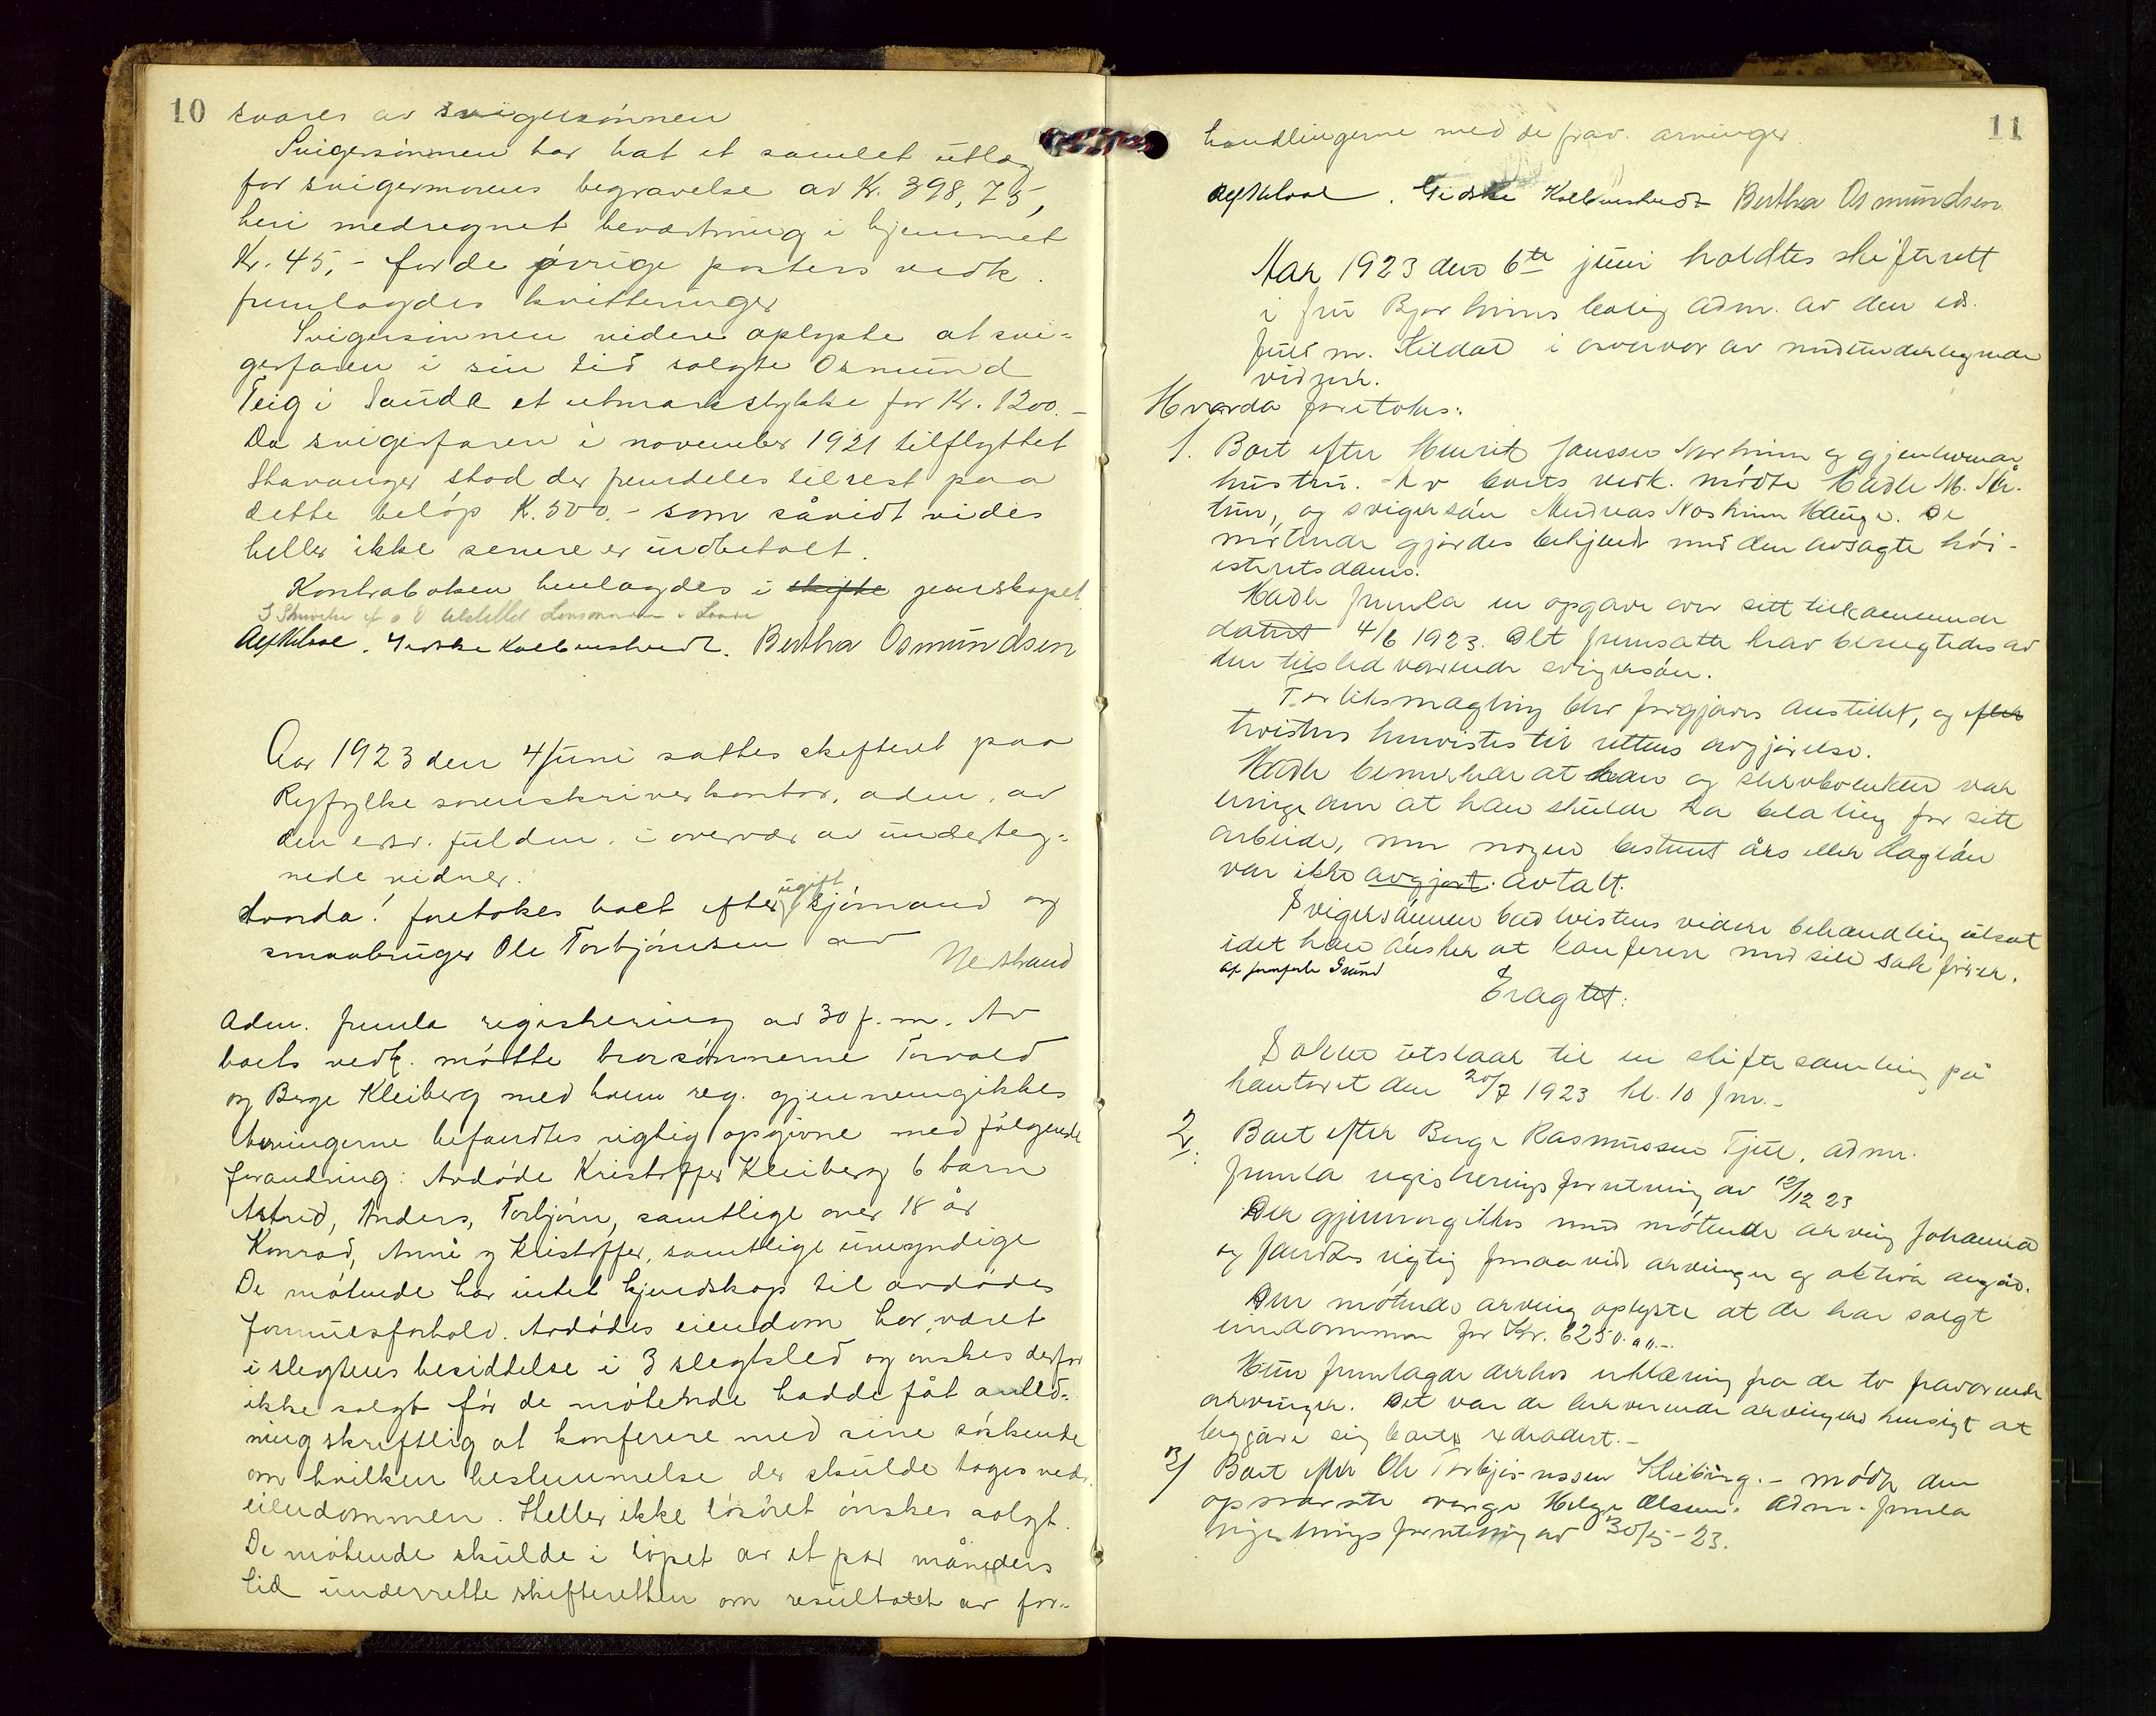 10
svares av svigersönnen
Svigersönnen har hat et samlet utlæg
for svigermorens begravelse av Kr. 398,75,
heri medregnet beværtning i hjemmet
Kr. 45,- for de övrige posters vedk.
fremlagdes kvitteringer
Svigersönnen videre oplyste at svi-
gerfaren i sin tid solgte Osmund
Teig i Sauda et utmarkstykke for Kr. 1200.-
Da svigerfaren i november 1921 tilflyttet
Stavanger stod der fremdeles til rest paa
dette belöp K. 500.- som såvidt vides
heller ikke senere er indbetalt.
Kontraboken henlagdes i skifte gjenskapet
Bertha Osmundsen
Aar 1923 den 4 Juni sattes skifteret paa
Ryfylke sorenskriverkontor, adm. av
den edsv. fuldm. i overvær av underteg-
nede vidner.
Hvorda! foretokes boet efter ugift sjömand og
smaabruger Ole Torbjörnsen av
Nedstrand
Adm. fremla registrering av 30 f.m. Av
boets vedk. mötte brorsönnerne Torvald
og Berge Kleiberg med hvem reg. gjennemgikkes
Arvingerne befandtes rigtig opgivne med fölgende
forandring: Avdöde Kristoffer Kleiberg 6 barn
Astrid, Anders, Torbjörn, samtlige over 18 år
Konrad, Anni og Kristoffer, samtlige umyndige
De mötende har intet kjendskap til avdödes
formuesforhold. Avdödes eiendom har været
i slegtens besiddelse i 3 slegtsled og önskes derfor
ikke solgt för de mötende hadde fåt anled-
ning skriftlig at konferere med sine söskende
om hvilken bestemmelse der skulde tages vedr.
eiendommen. Heller ikke lösöret önskes solgt.
De mötende skulde i löpet av et par måneders
tid underrette skifteretten om resultatet av for-
11
handlingerne med de frav. arvinger
Bertha Osmundsen
Aar 1923 den 6te juni holdtes skifterett
i fru Bjorheims bolig adm. av den eds.
fuld m. Kildal i overvær av medundertegnede
vidner.
Hvorda foretokes:
1. Boet efter Henrik Janssen Norheim og gjenlevende
hustru. Av boets vedk. mödte Hadle M.
tun, og svigersön Andreas Norheim Hauge. De
mötende gjördes bekjendt med den avsagte höi-
esteretsdom.
Hadle fremla en opgave over sitt tilkommende
datert 4/6 1923. Alt fremsatte krav benegtedes av
den tilstedværende svigersön.
Forliksmægling blev forgjæves anstillet, og efter
tvisten henvistes til rettens avgjörelse.
Hadle bemerker at han og skrobenken var
enige om at han skulde ha betaling for sitt
arbeide, men nogen bestemt års eller daglön
var ikke avgjort. avtalt.
Svigersönnen bad tvistens videre behandling utsat
idet han önsker at konferere med sin sakförer.
Eragtet:
Saken utstaar til en skiftesamling på
kontoret den 20/7 1923 kl. 10 fm.-
2. Boet efter Berge Rasmussen Tjul, adm.
fremla registreringsforretning av 12/12 23
Den gjennemgikkes med mötende arving Johanna
og fandtes rigtig forsaavidt arvinger og aktiva angår.
Den mötende arving oplyste at de har solgt
eiendommen for Kr. 6250.00.-
Hun fremlagde derhos erklæring fra de to fraværende
arvinger. Det var de herværende arvingers hensigt at
begjære sig boets extradert.-
3/ Boet efter Ole Torbjörnsen Kleiberg.- mödte den
opnævnte verge Helge Olsen. Adm. fremla
registreringsforretning av 30/5-23.